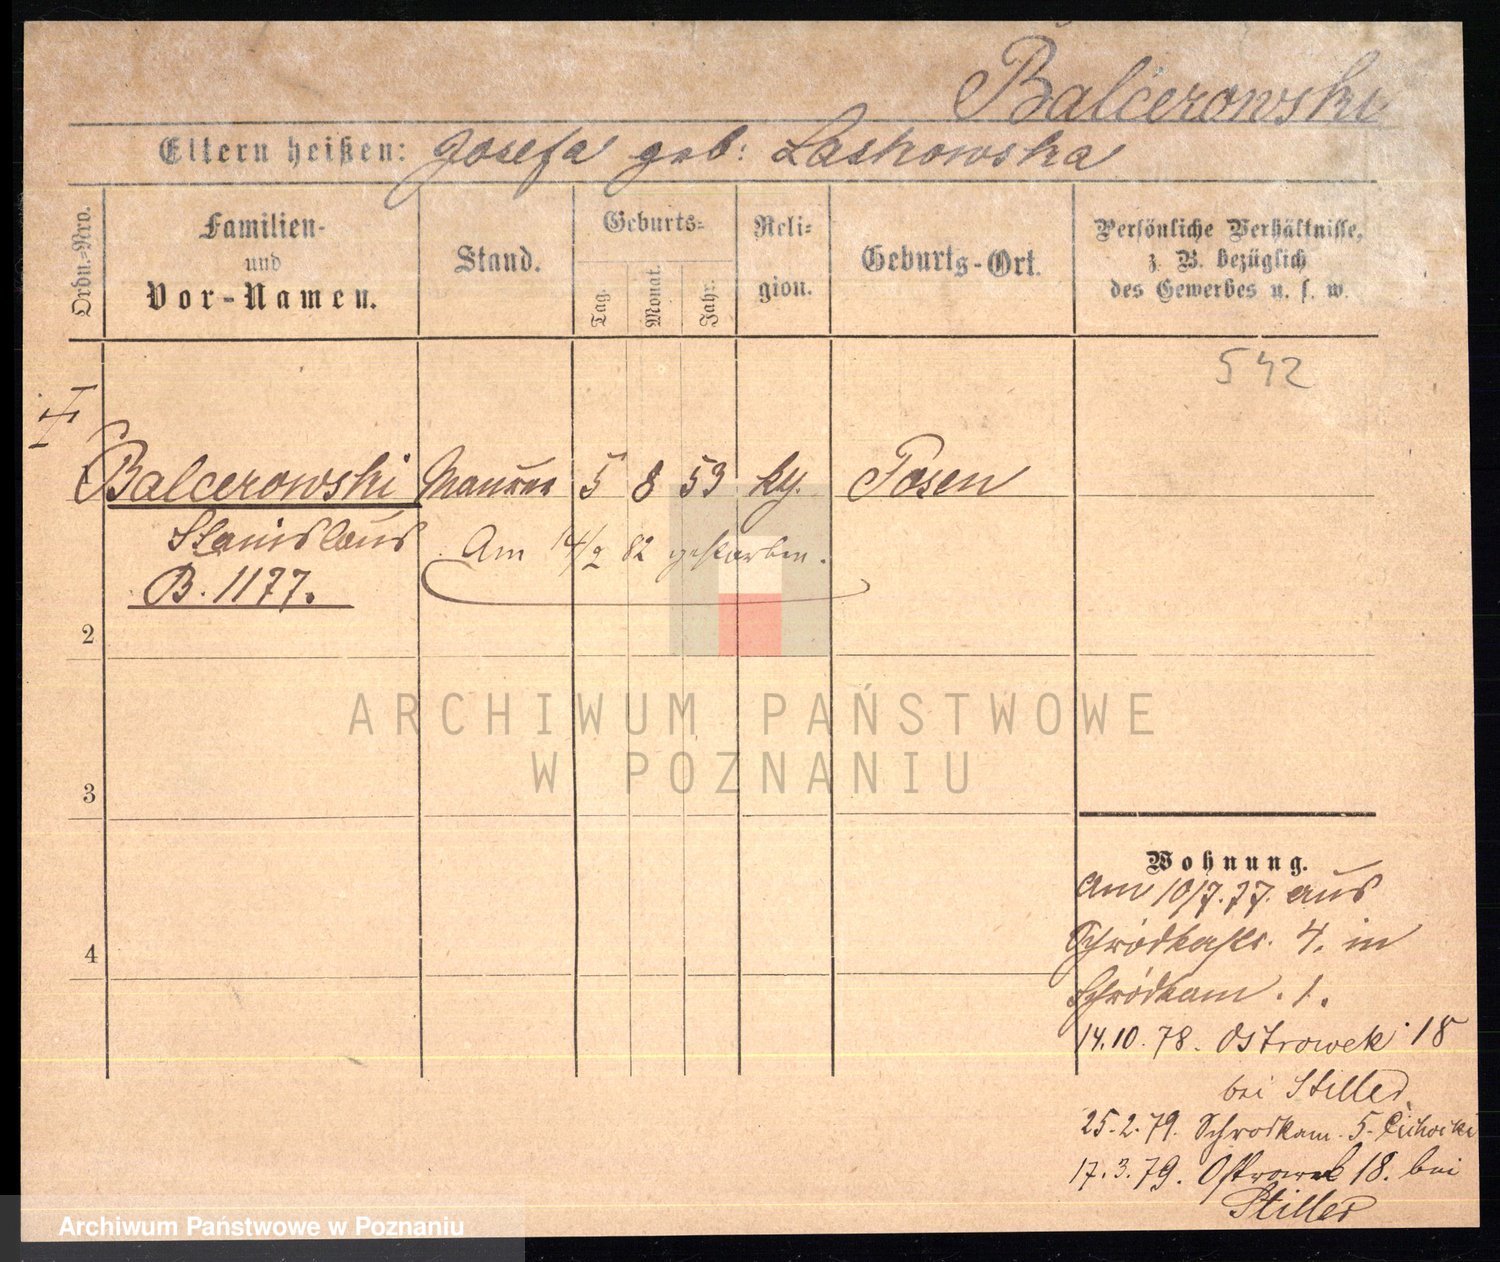 Balcerowski
Eltern heißen: Josefa geb: Laskowska
Ordn.=Nro.
Familien-
und
Vor-Namen.
Stand.
Geburts=
Tag.
Monat.
Jahr.
Reli=
gion.
Geburts-Ort.
Persönliche Verhältnisse,
z. B. bezüglich
des Gewerbes u. s. w.
542
Balcerowski Maurer 5 8 53 Posen
Stanislaus
Am 14/9 82 gestorben.
B. 1177.
2
3
4
Wohnung.
Am 10/7. 77. aus
Schrodkastr. 4. in
Schrodkam. 1.
14.10.78. Ostrowek 18
bei Stiller
25.2.79. Schrodkam. 5.
17.3.79. Ostrowek 18. bei
Stiller
ARCHIWUM PAŃSTWOWE
W POZNANIU
Archiwum Państwowe w Poznaniu